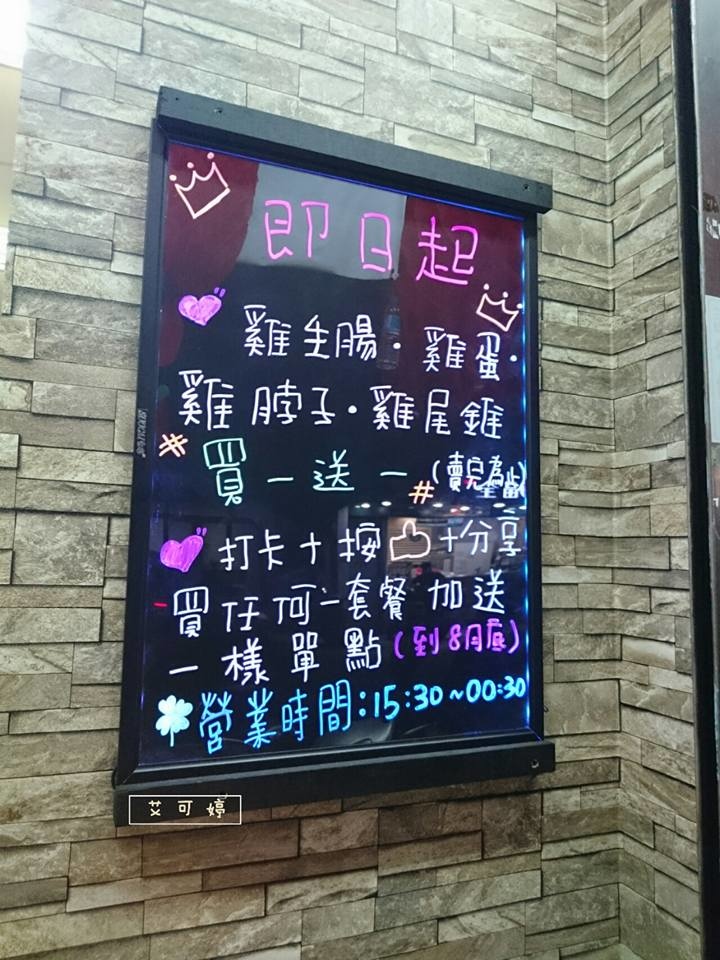 即日起
雞生腸·雞蛋·
雞脖子·雞尾錐
買一送一(賣完為止)
打卡+按+分享
買任何一套餐加送
一樣單點(到8月底)
營業時間:15:30~00:30
艾可婷